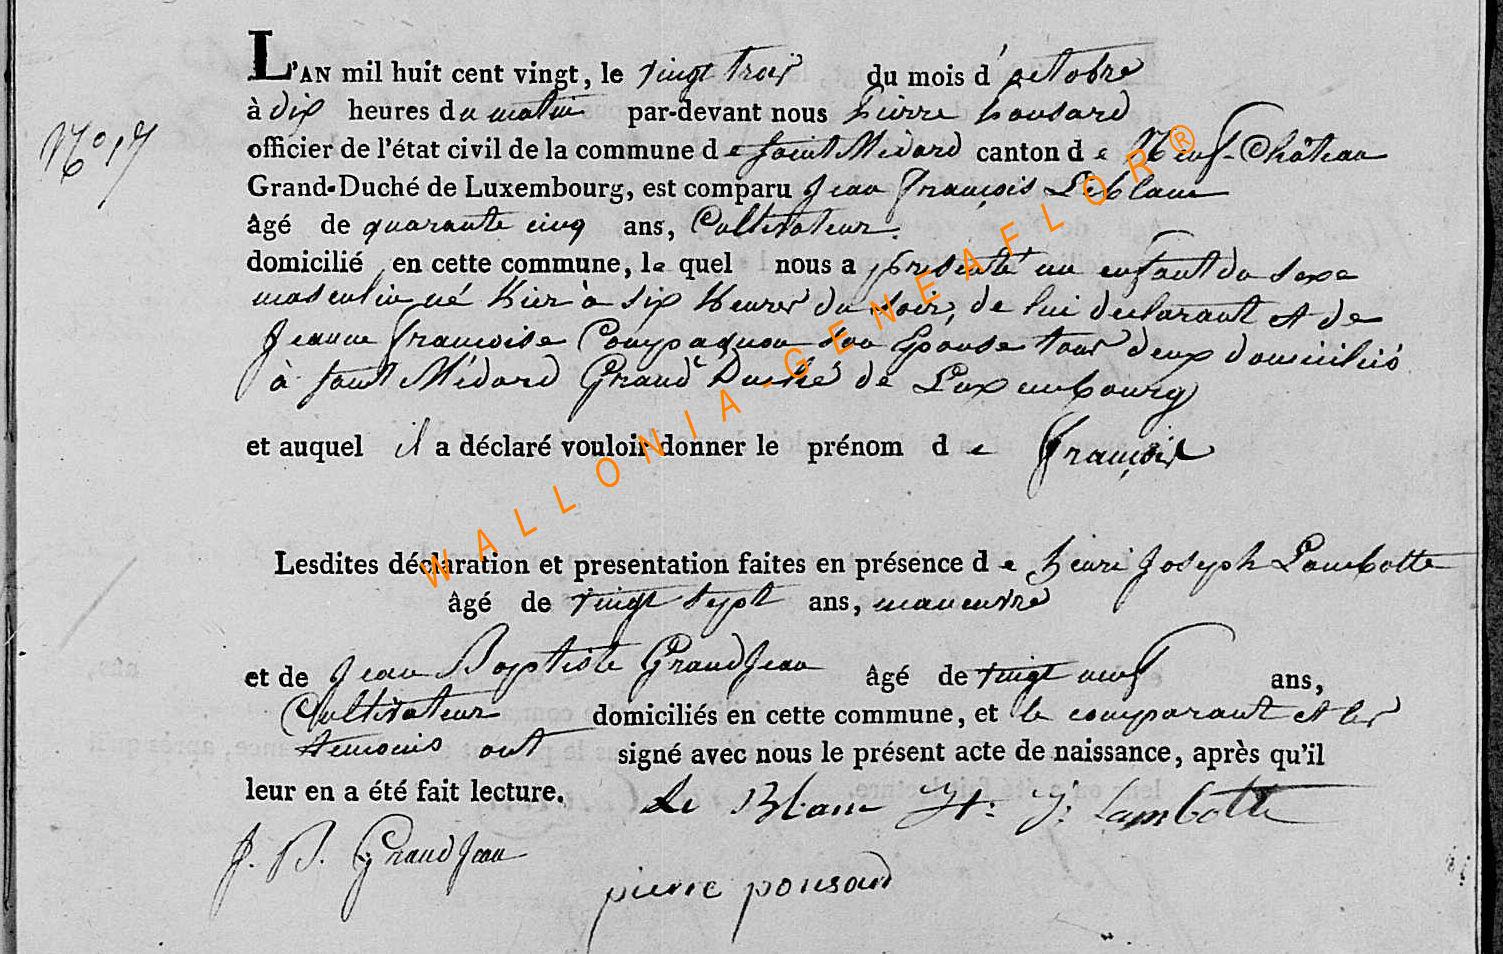 L'AN mil huit cent vingt, le vingt trois du mois d'octobre
à dix heures du matin par-devant nous pierre ponsard
N° 17
officier de l'état civil de la commune de saint Médard canton de Neuf-Château
Grand-Duché de Luxembourg, est comparu Jean françois Leblanc
âgé de quarante cinq ans, Cultivateur.
domicilié en cette commune, lequel nous a présenté un enfant du sexe
masculin né hier à six heures du soir, de lui declarant et de
Jeanne françoise Compagnon son Epouse tous deux domiciliés
à saint Médard Grand Duché de Luxembourg
et auquel il a déclaré vouloir donner le prénom de françois
Lesdites déclaration et presentation faites en présence de henri Joseph Lambotte
âgé de vingt sept ans, maneuvre
et de Jean Baptiste GrandJean âgé de vingt neuf ans,
Cultivateur domiciliés en cette commune, et le comparant et les
temoins ont signé avec nous le présent acte de naissance, après qu'il
leur en a été fait lecture.
Le Blanc H: J: Lambotte
J. B. GrandJean
pierre ponsard
WALLONIA-GENEAFLOR®